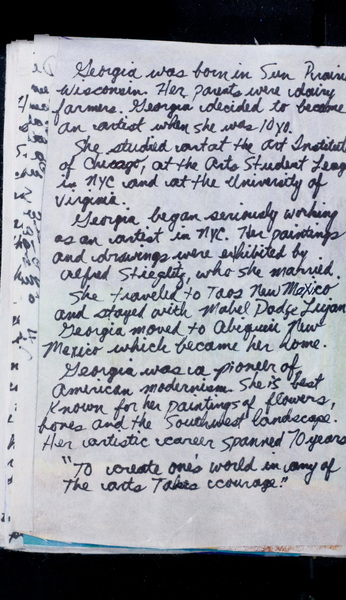 Georgia was born in Sun Prairie
Wisconsin. Her parents were dairy
farmers. Georgia decided to become
an artist when she was 10 yo.
She studied art at the Art Institute
of Chicago, at the Arts Student Leag
in NYC and at the University of
Virginia.
Georgia began seriously working
as an artist in NYC. Her paintings
and drawings were exhibited by
Alfred Stieglitz, who she married.
She traveled to Taos New Mexico
and stayed with Mabel Dodge Lujan
Georgia moved to Abiquiu New
Mexico which became her home.
Georgia was a pioneer of
American modernism. She is best
known for her paintings of flowers,
bones and the Southwest landscape.
Her artistic career spanned 70 years
"To create one's world in any of
the arts takes courage."